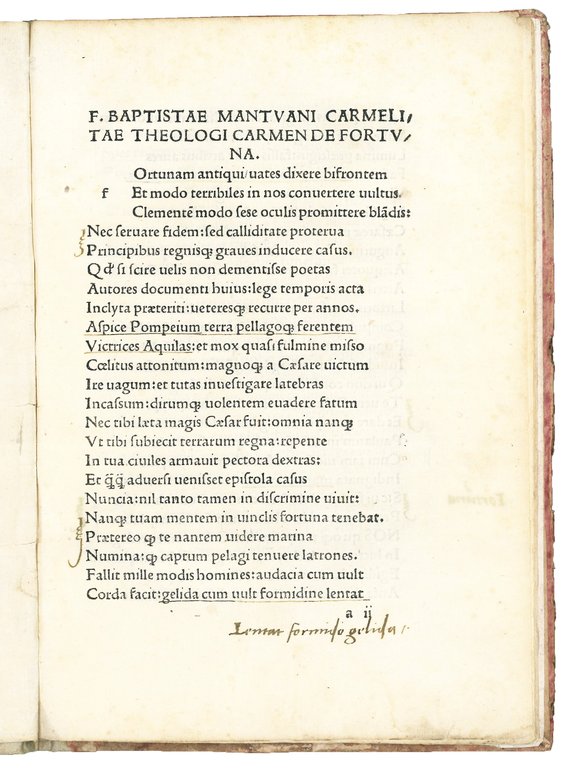 F. BAPTISTAE MANTVANI CARMELI,
TAE THEOLOGI CARMEN DE FORTV,
NA.
Ortunam antiqui uates dixere bifrontem
f Et modo terribiles in nos conuertere uultus.
Clementē modo sese oculis promittere blādis:
Nec seruare fidem: sed calliditate proterua
Principibus regnisqꝫ graues inducere casus.
Qd' si scire uelis non dementisse poetas
Autores documenti huius: lege temporis acta
Inclyta præteriti: ueteresqꝫ recurre per annos.
Aspice Pompeium terra pellagoqꝫ ferentem
Victrices Aquilas: et mox quasi fulmine misso
Cœlitus attonitum: magnoqꝫ a Cæsare uictum
Ire uagum: et tutas inuestigare latebras
Incassum: dirumqꝫ uolentem euadere fatum
Nec tibi læta magis Cæsar fuit: omnia nanqꝫ
Vt tibi subiecit terrarum regna: repente
In tua ciuiles armauit pectora dextras:
Et q̄q̄ aduersi uenisset epistola casus
Nuncia: nil tanto tamen in discrimine uiuit:
Nanqꝫ tuam mentem in uinclis fortuna tenebat.
Prætereo qꝫ te nantem uidere marina
Numina: qꝫ captum pelagi tenuere latrones.
Fallit mille modis homines: audacia cum uult
Corda facit: gelida cum uult formidine lentat
a ii
Lentat formido gelida